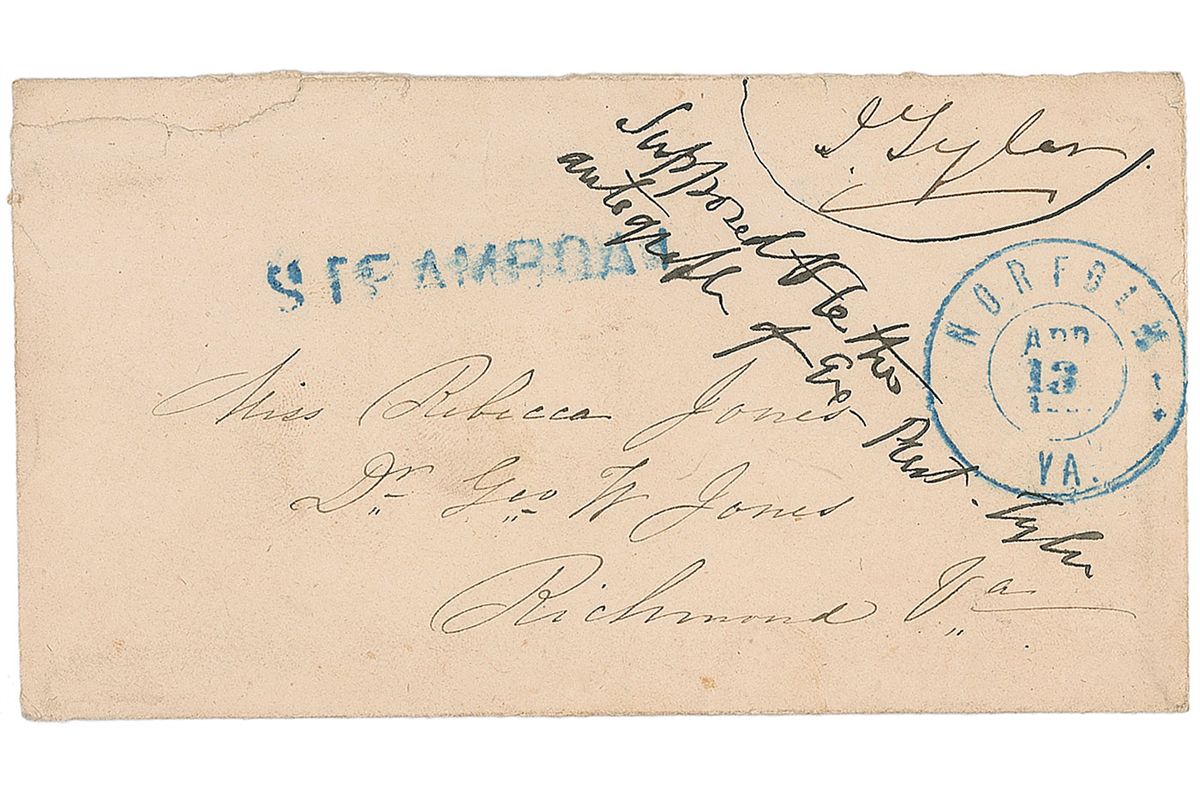 J Tyler
Supposed to be the
autograph of Ex. Prest. Tyler
STEAMBOAT
NORFOLK
APR
13
VA.
Miss Rebecca Jones
Dr Geo W Jones
Richmond Va